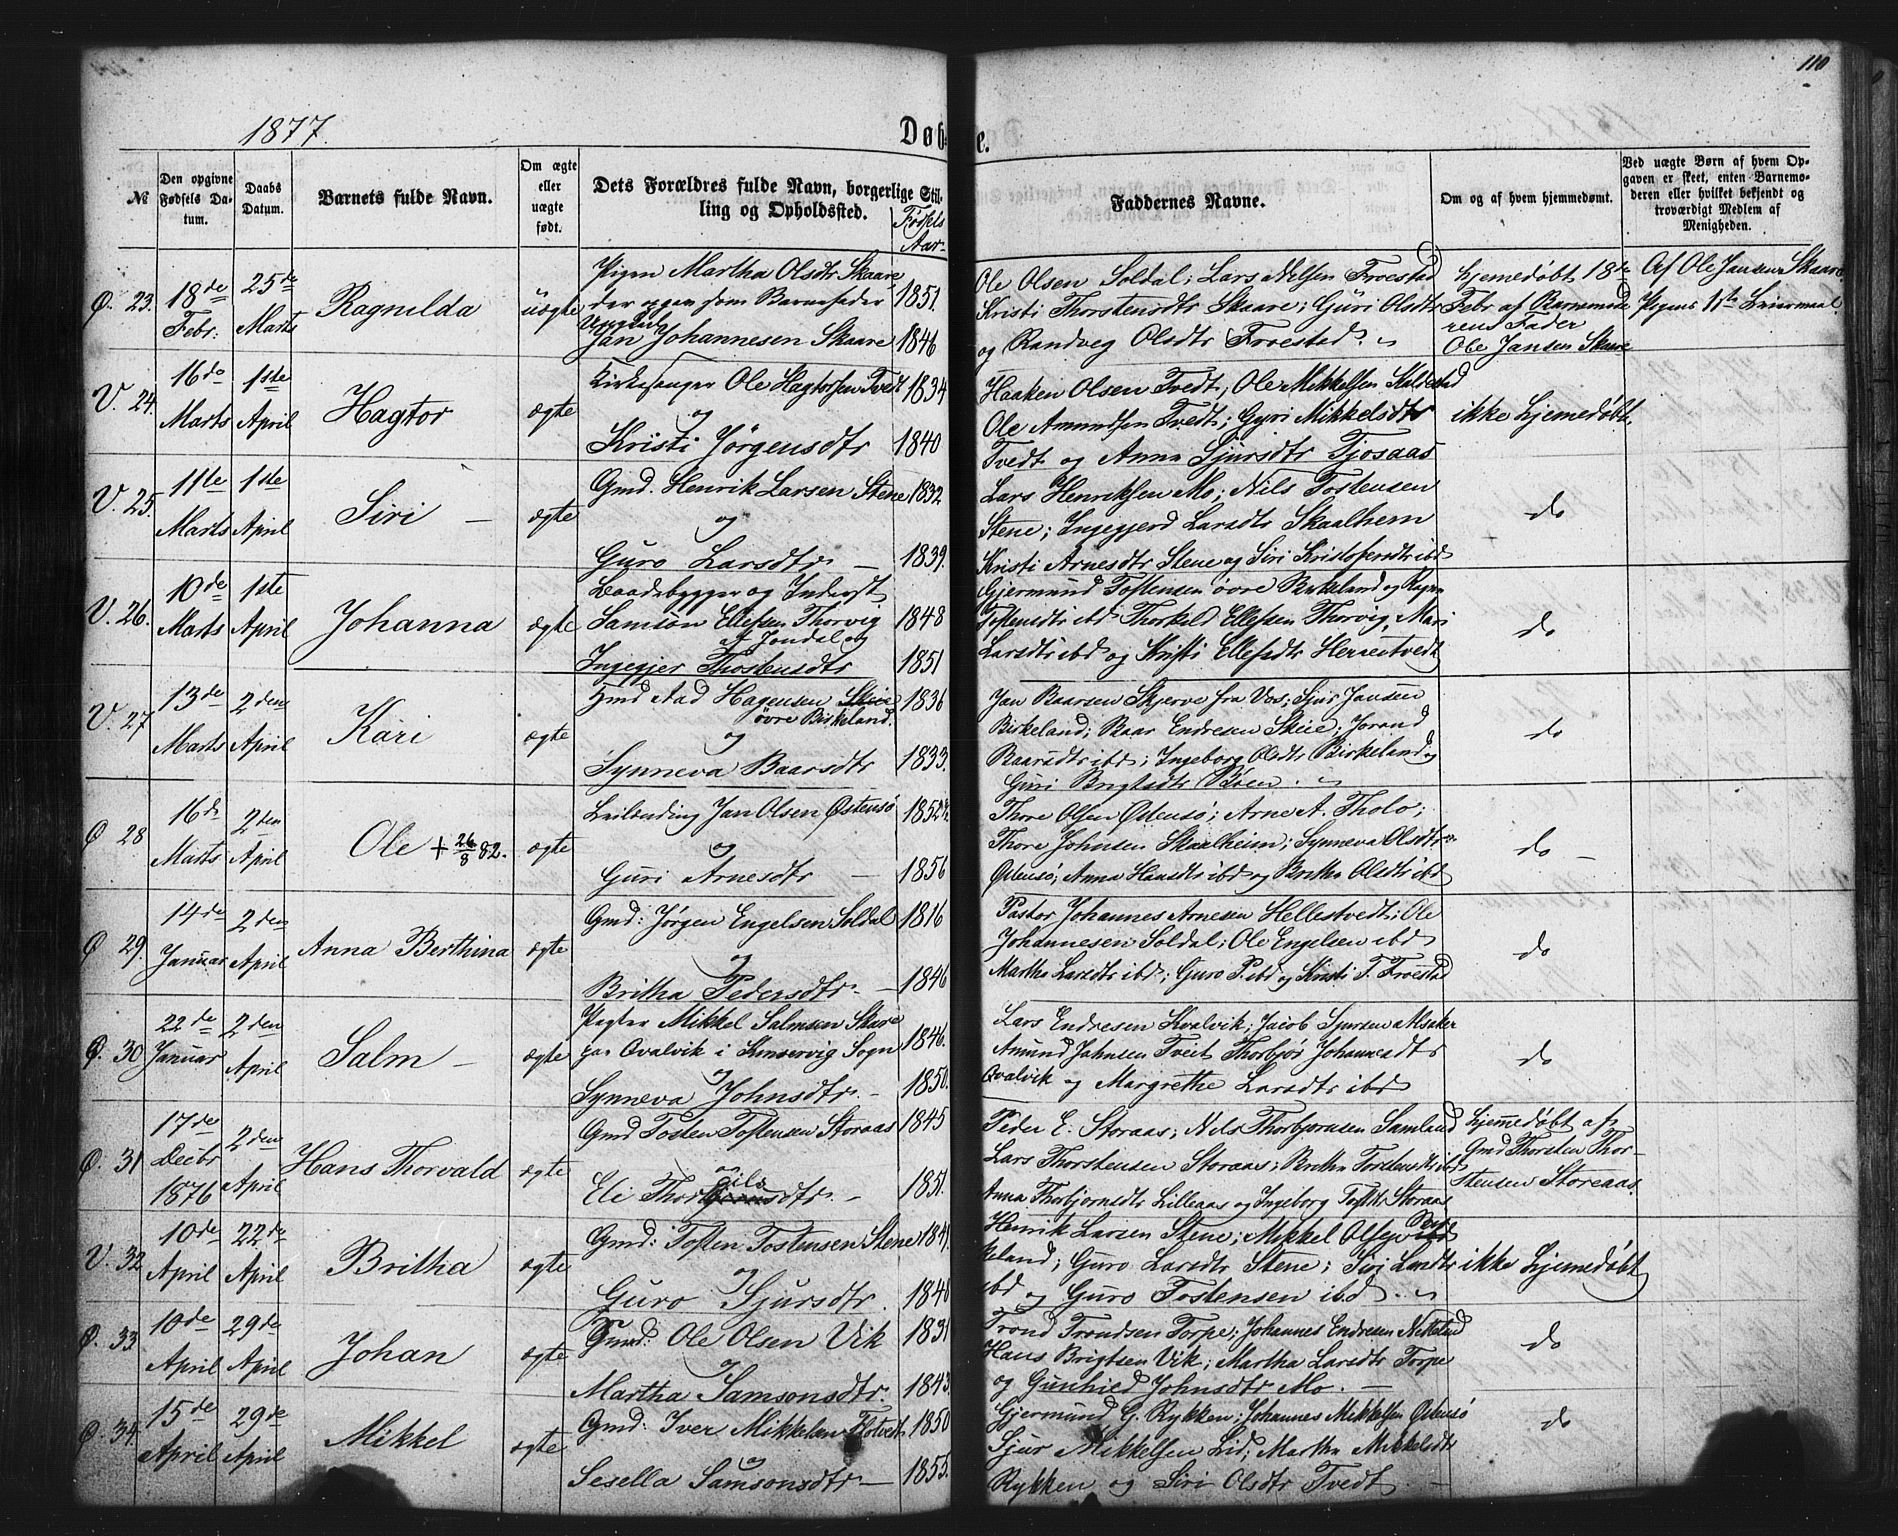 110
1877.
Døbte.
№
Den opgivne Fødsels Datum.
Daabs Datum.
Barnets fulde Navn.
Om ægte eller uægte født.
Dets Forældres fulde Navn, borgerlige Stilling og Opholdssted.
Fødsels Aar
Faddernes Navne.
Om og af hvem hjemmedømt.
Ved uægte Børn af hvem Opgaven er skeet, enten Barnemoderen eller hvilket bekjendt og troværdigt Medlem af Menigheden.
Ø. 23. 18de Febr. 25de Marts Ragnilda uægte
Pigen Martha Olsdtr Skaare 1851.
Jan Johannesen Skaare 1846
Ole Olsen Soldal; Lars Nelsen Froestad
Kristi Thorstensdtr Skaare; Guri Olsdtr
og Randveg Olsdtr Froestad.
hjemedøbt 18de
Febr af Barnemode
rens Fader
Ole Jansen Skaare
Af Ole Jansen Skaare.
Pigens 1ste Leiermaal.
V. 24. 16de Marts 1ste April Hagtor ægte
Kirkesanger Ole Hagtorsen Tvedt 1834
og
Kristi Jørgensdtr 1840
Haaken Olsen Tvedt; Ole Mikkelsen
Ole Amundsen Tvedt; Gyri Mikkelsdtr
Tvedt og Anna Sjursdtr Tjosaas
ikke hjemedøbt.
V. 25. 11te Marts 1ste April Siri ægte
Gmd. Henrik Larsen Stene 1832
og
Guro Larsdtr 1839.
Lars Henriksen Mo; Nils Tostensen
Stene; Ingegjerd Larsdtr Skaalhem
Kristi Arnesdtr Stene og Siri Kristofersdtr ibd
do
V. 26. 10de Marts 1ste April Johanna ægte
Baadsbygger og Inderst
Samson Ellefsen Thorvig 1848
af Jondal og
Ingegjer Thostensdtr 1851
Gjermund Tostensen øvre Birkeland og
Tostensdtr ibd Thorkeld Ellefsen Thorvig, Mari
Larsdtr ibd og Kristi Ellefsdtr Herrestvedt
do
V. 27 13de Marts 2den April Kari ægte
Aad Hagensen Skeie 1836
øvre Birkeland.
og
Synneva Baarsdtr 1833.
Jan Baarsen Skjerve fra Vos; Sjur Jansen
Birkeland; Baar Endresen Skeie; Jorand
Baarsdtr ibd; Ingeborg Olsdtr Birkeland og
Guri Brigtsdtr Bøen.
do
Ø 28 16de Marts 2den April Ole + 26/8 82. ægte
Leilending Jan Olsen Østensø 1852
og
Guri Arnesdtr 1856
Thore Olsen Østensø; Arne A. Tholo;
Thore Johnsen Skaalheim; Synneva Olsdtr
Østensø; Anna Haasdtr ibd og Britha Olsdtr ibd
do
Ø 29. 14de Januar 2den April Anna Berthina ægte
Gmd: Jørgen Engelsen Soldal 1816
og
Britha Pedersdtr. 1846
Pastor Johannes Arnesen Hellestvedt; Ole
Johannesen Soldal; Ole Engelsen ibd
Martha Larsdtr ibd; Guro P. ibd og Kristi T. Froestad
do
Ø. 30 22de Januar 2den April Salm ægte
Mikkel Salmsen Skare 1846.
paa Qvalvik i Kinservig Sogn
og
Synneva Johnsdtr. 1850.
Lars Endresen Kvalvik; Jacob Sjursen Alsaker
Amund Jahnsen Tveit Thorbjør Johannesdtr
Qvalvik og Margrethe Larsdtr ibd
do
Ø. 31 17de Decbr 1876 2den April Hans Thorvald ægte
Gmd Tosten Tostensen Storaas 1845
og
Eli Thorgilsdtr. 1851.
Peder E. Storaas; Nils Thorbjørnsen Samland
Lars Thorstensen Storaas; Britha Tostensdtr ibd
Anna Thorbjornsdtr Lilleaas og Ingeborg Tostdtr Storaas
hjemedøbt af
Gmd Thorsten Thor-
stensen Storeaas.
V. 32 10de April 22de April Britha ægte
Gmd: Tosten Tostensen Stene 1841.
og
Guro Sjursdtr. 1840
Henrik Larsen Stene; Mikkel Olsen Bir
keland; Guro Larsdtr Stene; Siri Larsdtr
ibd og Guro Tostensen ibd.
ikke hjemedøbt
Ø. 33 10de April 29de April Johan ægte
Gmd: Ole Olsen Vik 1831
og
Martha Samsonsdtr. 1843.
Trond Trondsen Torpe; Johannes Endresen Netteland
Hans Brigtsen Vik; Martha Larsdtr Torpe
og Gunhild Johnsdtr Mo.
do
Ø. 34. 15de April 29de April Mikkel ægte
Gmd: Iver Mikkelsen Flotvedt 1850
og
Sesella Samsonsdtr 1855.
Gjermund G. Rykken; Johannes Mikkelsen Østensø
Sjur Mikkelsen Lid; Martha Mikkelsdtr
Rykken og Siri Olsdtr Tvedt.
do